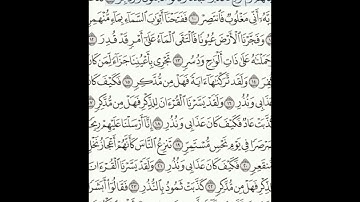 أَنِّي مَغْلُوبٌ فَٱنتَصِرْ ١٠ فَفَتَحْنَآ أَبْوَٰبَ ٱلسَّمَآءِ بِمَآءٍ مُّنْهَمِرٍ
وَفَجَّرْنَا ٱلْأَرْضَ عُيُونًا فَٱلْتَقَى ٱلْمَآءُ عَلَىٰٓ أَمْرٍ قَدْ قُدِرَ ١٢
حَمَلْنَٰهُ عَلَىٰ ذَاتِ أَلْوَٰحٍ وَدُسُرٍ ١٣ تَجْرِي بِأَعْيُنِنَا جَزَآءً لِّمَن كَانَ
١٤ وَلَقَد تَّرَكْنَٰهَآ ءَايَةً فَهَلْ مِن مُّدَّكِرٍ ١٥ فَكَيْفَ كَانَ
عَذَابِي وَنُذُرِ ١٦ وَلَقَدْ يَسَّرْنَا ٱلْقُرْءَانَ لِلذِّكْرِ فَهَلْ مِن مُّدَّكِرٍ
كَذَّبَتْ عَادٌ فَكَيْفَ كَانَ عَذَابِي وَنُذُرِ ١٨ إِنَّآ أَرْسَلْنَا عَلَيْهِمْ
صَرْصَرًا فِي يَوْمِ نَحْسٍ مُّسْتَمِرٍّ ١٩ تَنزِعُ ٱلنَّاسَ كَأَنَّهُمْ أَعْجَازُ نَخْلٍ
مُّنقَعِرٍ ٢٠ فَكَيْفَ كَانَ عَذَابِي وَنُذُرِ ٢١ وَلَقَدْ يَسَّرْنَا ٱلْقُرْءَانَ
فَهَلْ مِن مُّدَّكِرٍ ٢٢ كَذَّبَتْ ثَمُودُ بِٱلنُّذُرِ ٢٣ فَقَالُوٓا۟ أَبَشَرًا